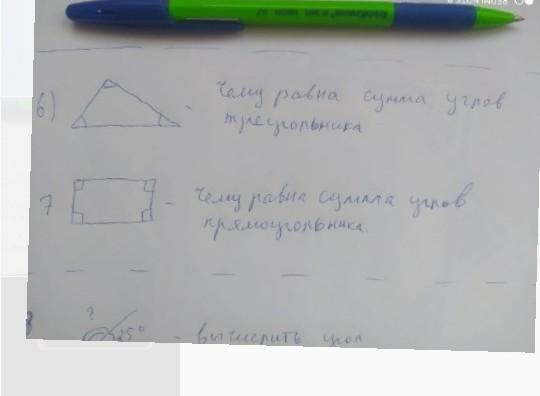 6) - Чему равна сумма углов
треугольника
7 - Чему равна сумма углов
прямоугольника.
? 25° - вычислить угол